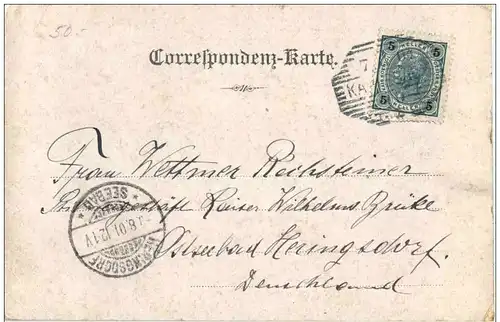 50.-
Correspondenz-Karte.
5 5
HELLER
5 5
7
KA
Frau Wettmer Rechsteiner
Kaiser Wilhelms Brücke
Ostseebad Heringsdorf.
Deutschland
HERINGSDORF
SEEBAD
8.01.12-1V